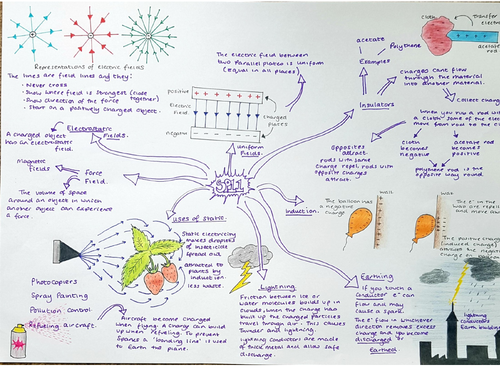 Representations of electric fields
The lines are field lines and they:
- Never cross
- Show where field is strongest (close together)
- Show direction of the force
- Start on a positively charged object.
Electrostatic Fields.
A charged object
has an electrostatic
field.
Magnetic
fields
Force
Field.
The volume of space
around an object in which
another object can experience
a force.
The electric field between
two parallel plates is uniform
(equal in all places)
positive
Electric
field
negative
charged
plates
Uniform
Fields.
SP11
acetate
Polythene
Examples
Insulators
charges can't flow
through the material
into another material.
Collect
cloth
transfer
acetate
rod
When you rub a rod
cloth some of the
move from rod to the
cloth
becomes
negative
acetate rod
becomes
positive
polythene rod is the
opposite way round.
Opposites
attract
rods with same
charge repel, rods with
opposite charges
attract.
Induction.
The balloon has
a negative
charge
wall
wall
The e⁻ in the
wall are repelled
and move
The positive charge
(induced charge)
attracts the
negative
charge on
Uses of static.
Static electricity
makes droplets
of insecticide
spread out
attracted to
plants by
induction
less waste.
Photocopiers
Spray Painting
Pollution Control
Refueling aircraft.
Aircraft become charged
when flying. A charge can build
up when refueling. To prevent
sparks a "bonding line" is used
to Earth the plane.
Lightning
Friction between ice or
water molecules builds up in
clouds, when the charge has
built up the charged particles
travel through air. This causes
Thunder and lightning.
Lightning conductors are made
of thick metal and allow safe
discharge.
Earthing
If you touch a
conductor e⁻ can
flow and may
cause a spark.
The e⁻ flow in whichever
direction removes excess
charge and you become
discharged or
Earthed
lightning
conductors
Earth buildings